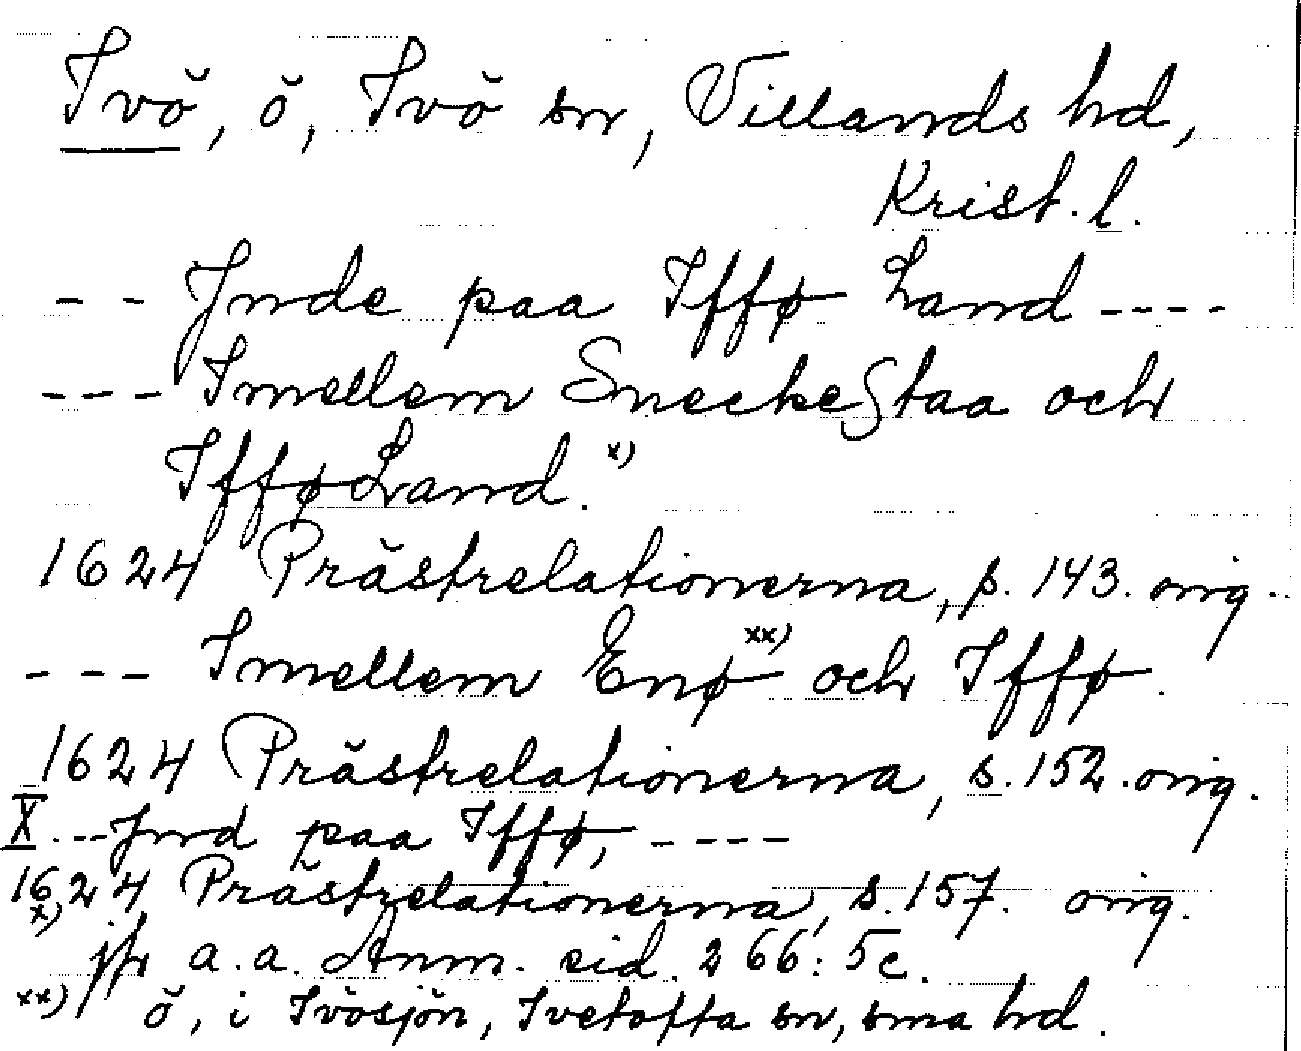 Ivö, ö, Ivö sn, Villands hd,
Krist. l.
-- Jnde paa Iffø Land ----
--- Imellem SneckeStaa och
IfføLand. x)
1624 Prästrelationerna, s. 143. orig.
--- Imellem Enø xx) och Iffø.
1624 Prästrelationerna, s. 152. orig.
X. -- Jnd paa Iffø, ----
1624 Prästrelationerna, s. 157. orig.
x) jfr a. a. Anm. sid. 266: 5c.
xx) ö, i Ivösjön, Ivetofta sn, sma hd.